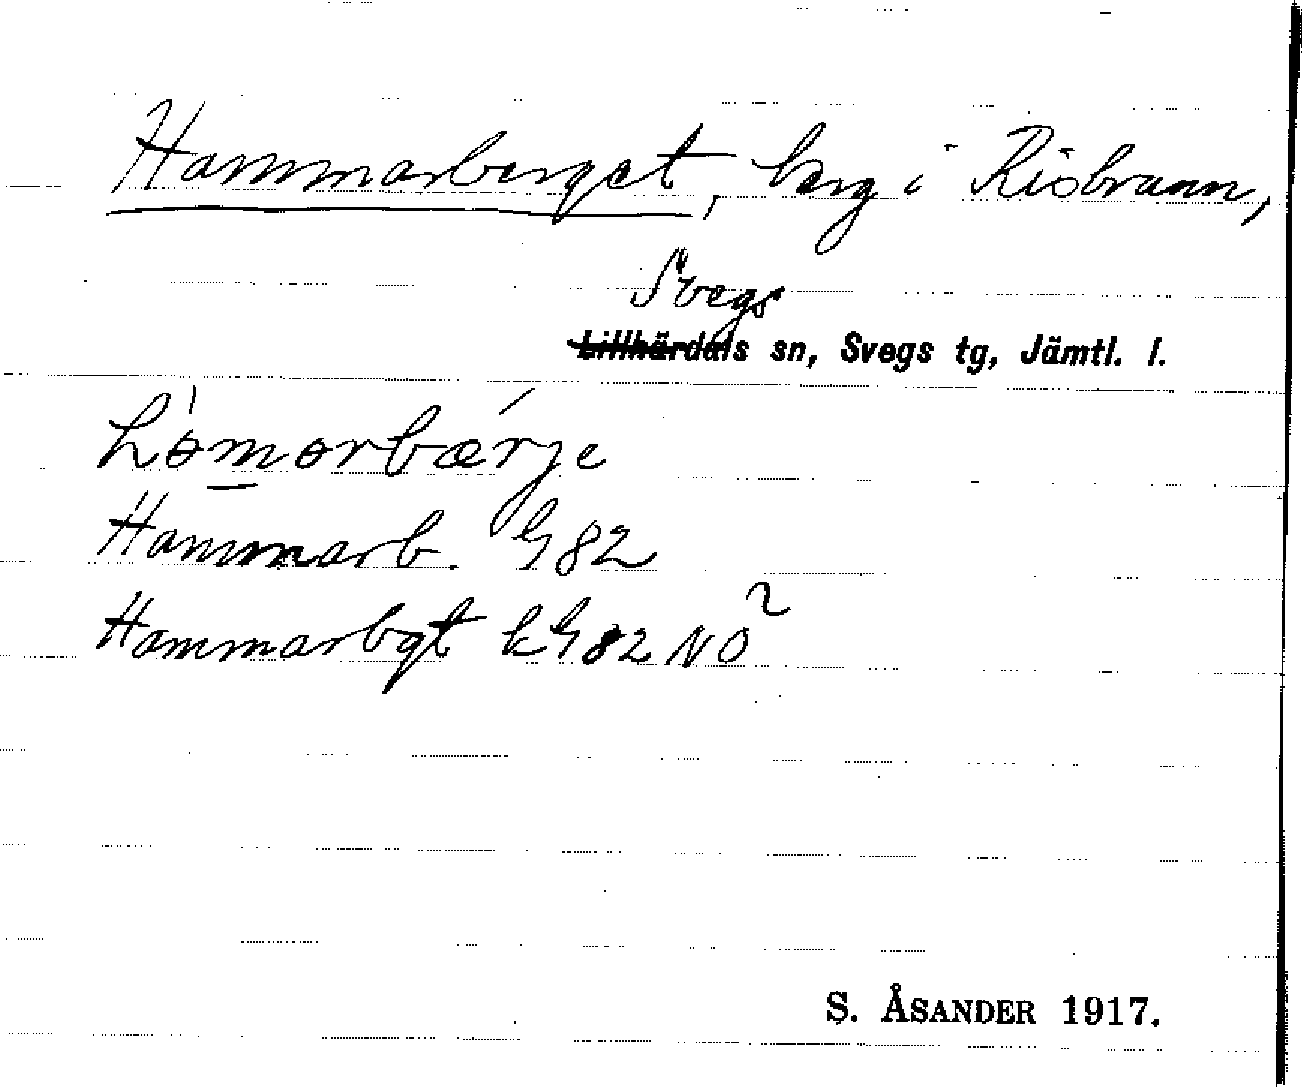 Hammarberget, berg i Risbrunn,
Svegs
Lillhärdals sn, Svegs tg, Jämtl. l.
hòmorbǽrje
Hammarb. G82
Hammarbgt kG82 NO²
S. ÅSANDER 1917.